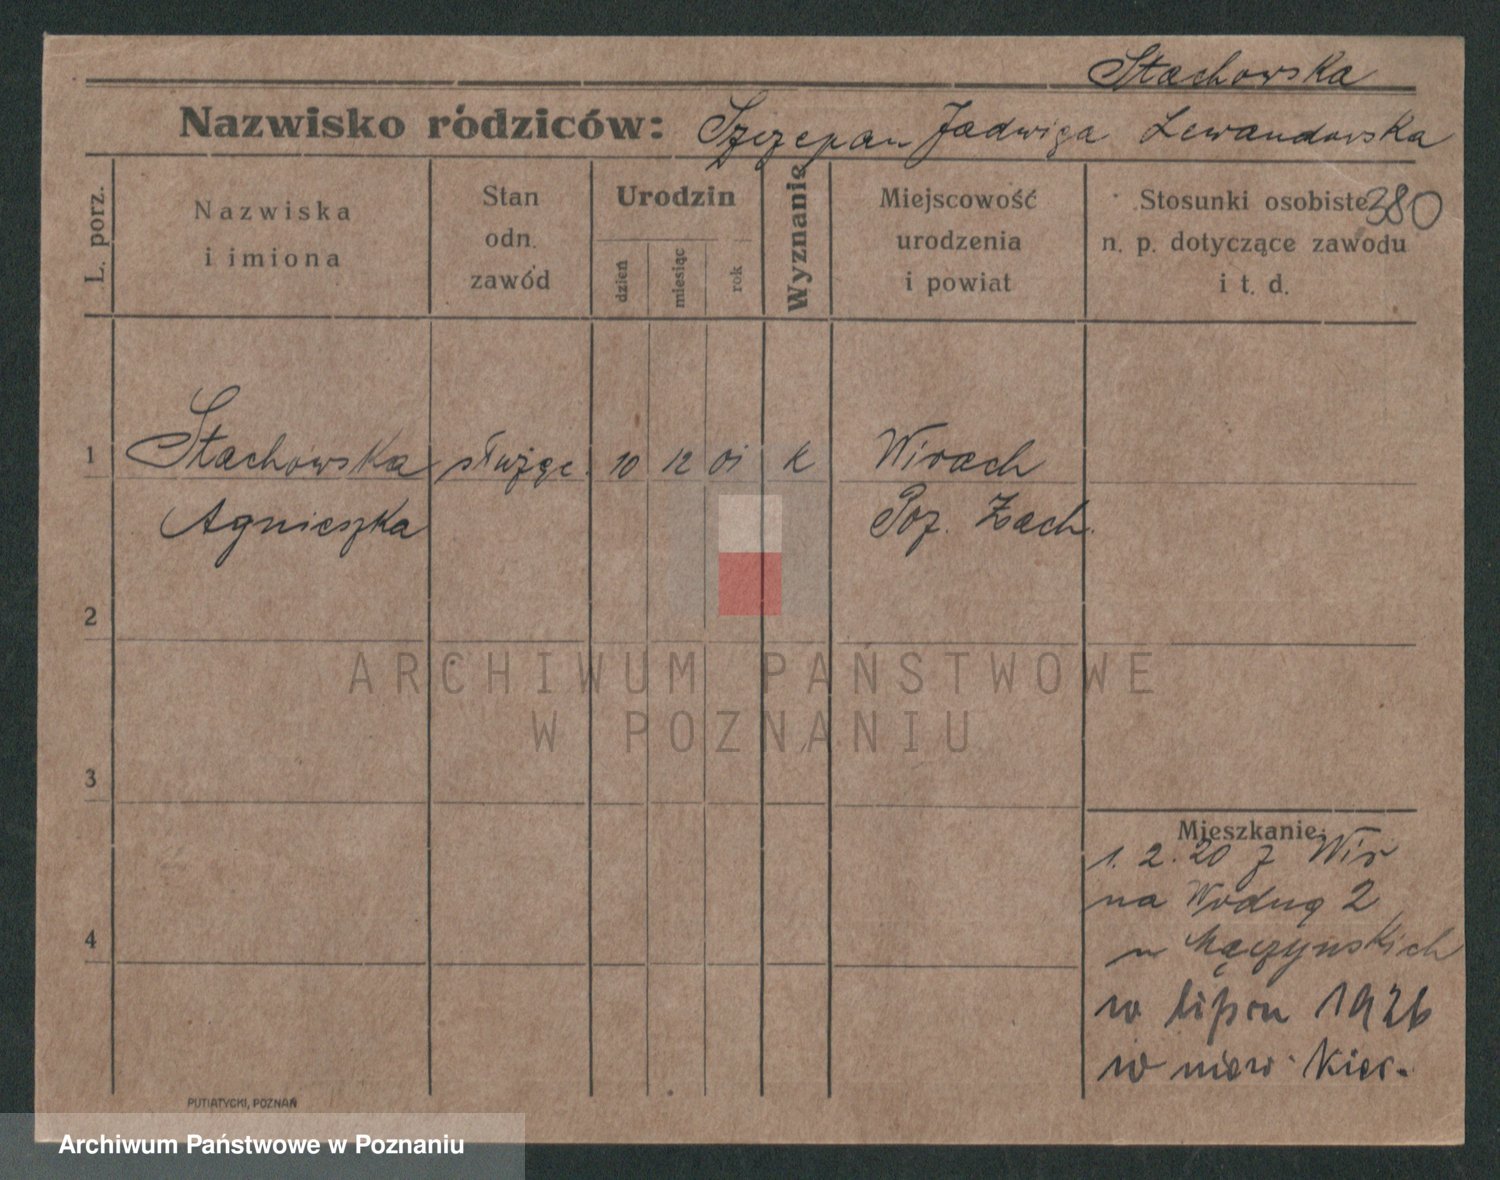 Stachowska
Nazwisko rodziców: Szczepan Jadwiga Lewandowska
380
L. porz.
Nazwiska
i imiona
Stan
odn.
zawód
Urodzin
dzień
miesiąc
rok
Wyznanie
Miejscowość
urodzenia
i powiat
Stosunki osobiste
n. p. dotyczące zawodu
i t. d.
1 Stachowska służąc. 10 12 01 k Wirach
Agnieszka Poz. Zach.
2
3
4
Mieszkanie:
1. 2. 20 z Wir
na Wodną 2
u Mączyńskich
w lipcu 1926
w niew. Kier.
PUTIATYCKI, POZNAŃ
ARCHIWUM PAŃSTWOWE
W POZNANIU
Archiwum Państwowe w Poznaniu